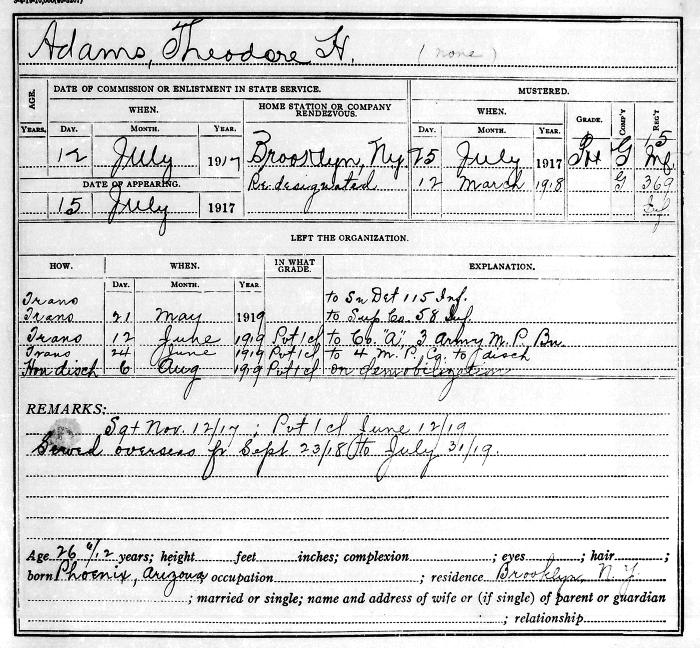 Adams, Theodore H. (none)
AGE. DATE OF COMMISSION OR ENLISTMENT IN STATE SERVICE. MUSTERED.
WHEN. HOME STATION OR COMPANY RENDEZVOUS. WHEN. GRADE. COMP'Y REG'T
YEARS. DAY. MONTH. YEAR. DAY. MONTH. YEAR.
12 July 1917 Brooklyn, Ny. 25 July 1917 Pvt G 15 Inf.
DATE OF APPEARING. Re-designated 12 March 1918 G 369 Inf
15 July 1917
LEFT THE ORGANIZATION.
HOW. WHEN. IN WHAT GRADE. EXPLANATION.
DAY. MONTH. YEAR.
Trans to Sn Det 115 Inf.
Trans 21 May 1919 to Sup Co. 58 Inf.
Trans 12 June 1919 Pvt 1 cl to Co. "A", 3 Army M. P. Bn.
Trans 24 June 1919 Pvt 1 cl to 4 M. P. Co. to disch
Hon disch 6 Aug 1919 Pvt 1 cl on demobilization
REMARKS:
Sgt Nov. 12/17; Pvt 1 cl June 12/19
Served overseas fr Sept 23/18 to July 31/19.
Age 26 6/12 years; height feet inches; complexion ; eyes ; hair ;
born Phoenix, Arizona, occupation ; residence Brooklyn, N. Y.
; married or single; name and address of wife or (if single) of parent or guardian
; relationship